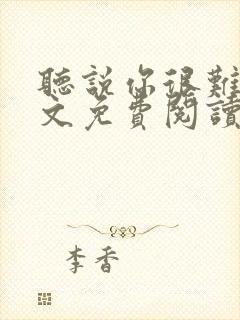 聽說你很難
文免費閱讀
李香